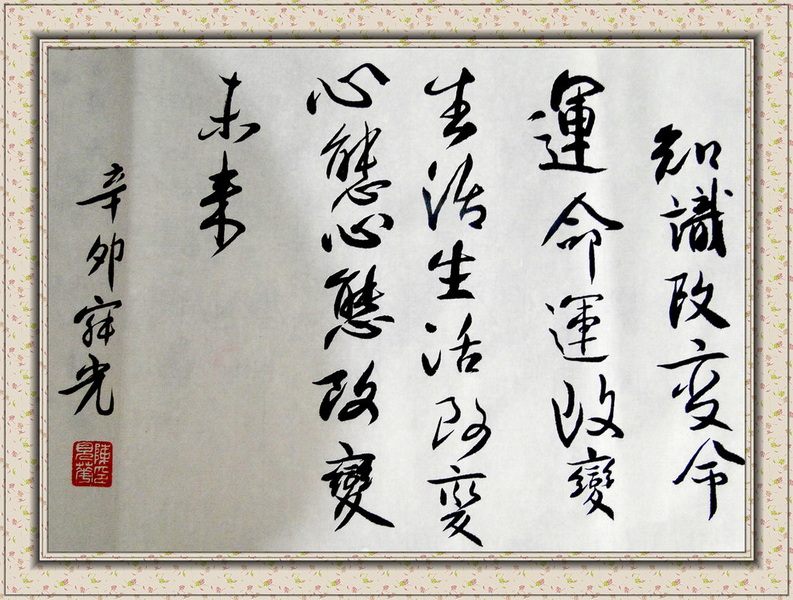 知識改变命
運命運改變
生活生活改变
心態心態改變
未来
辛卯光